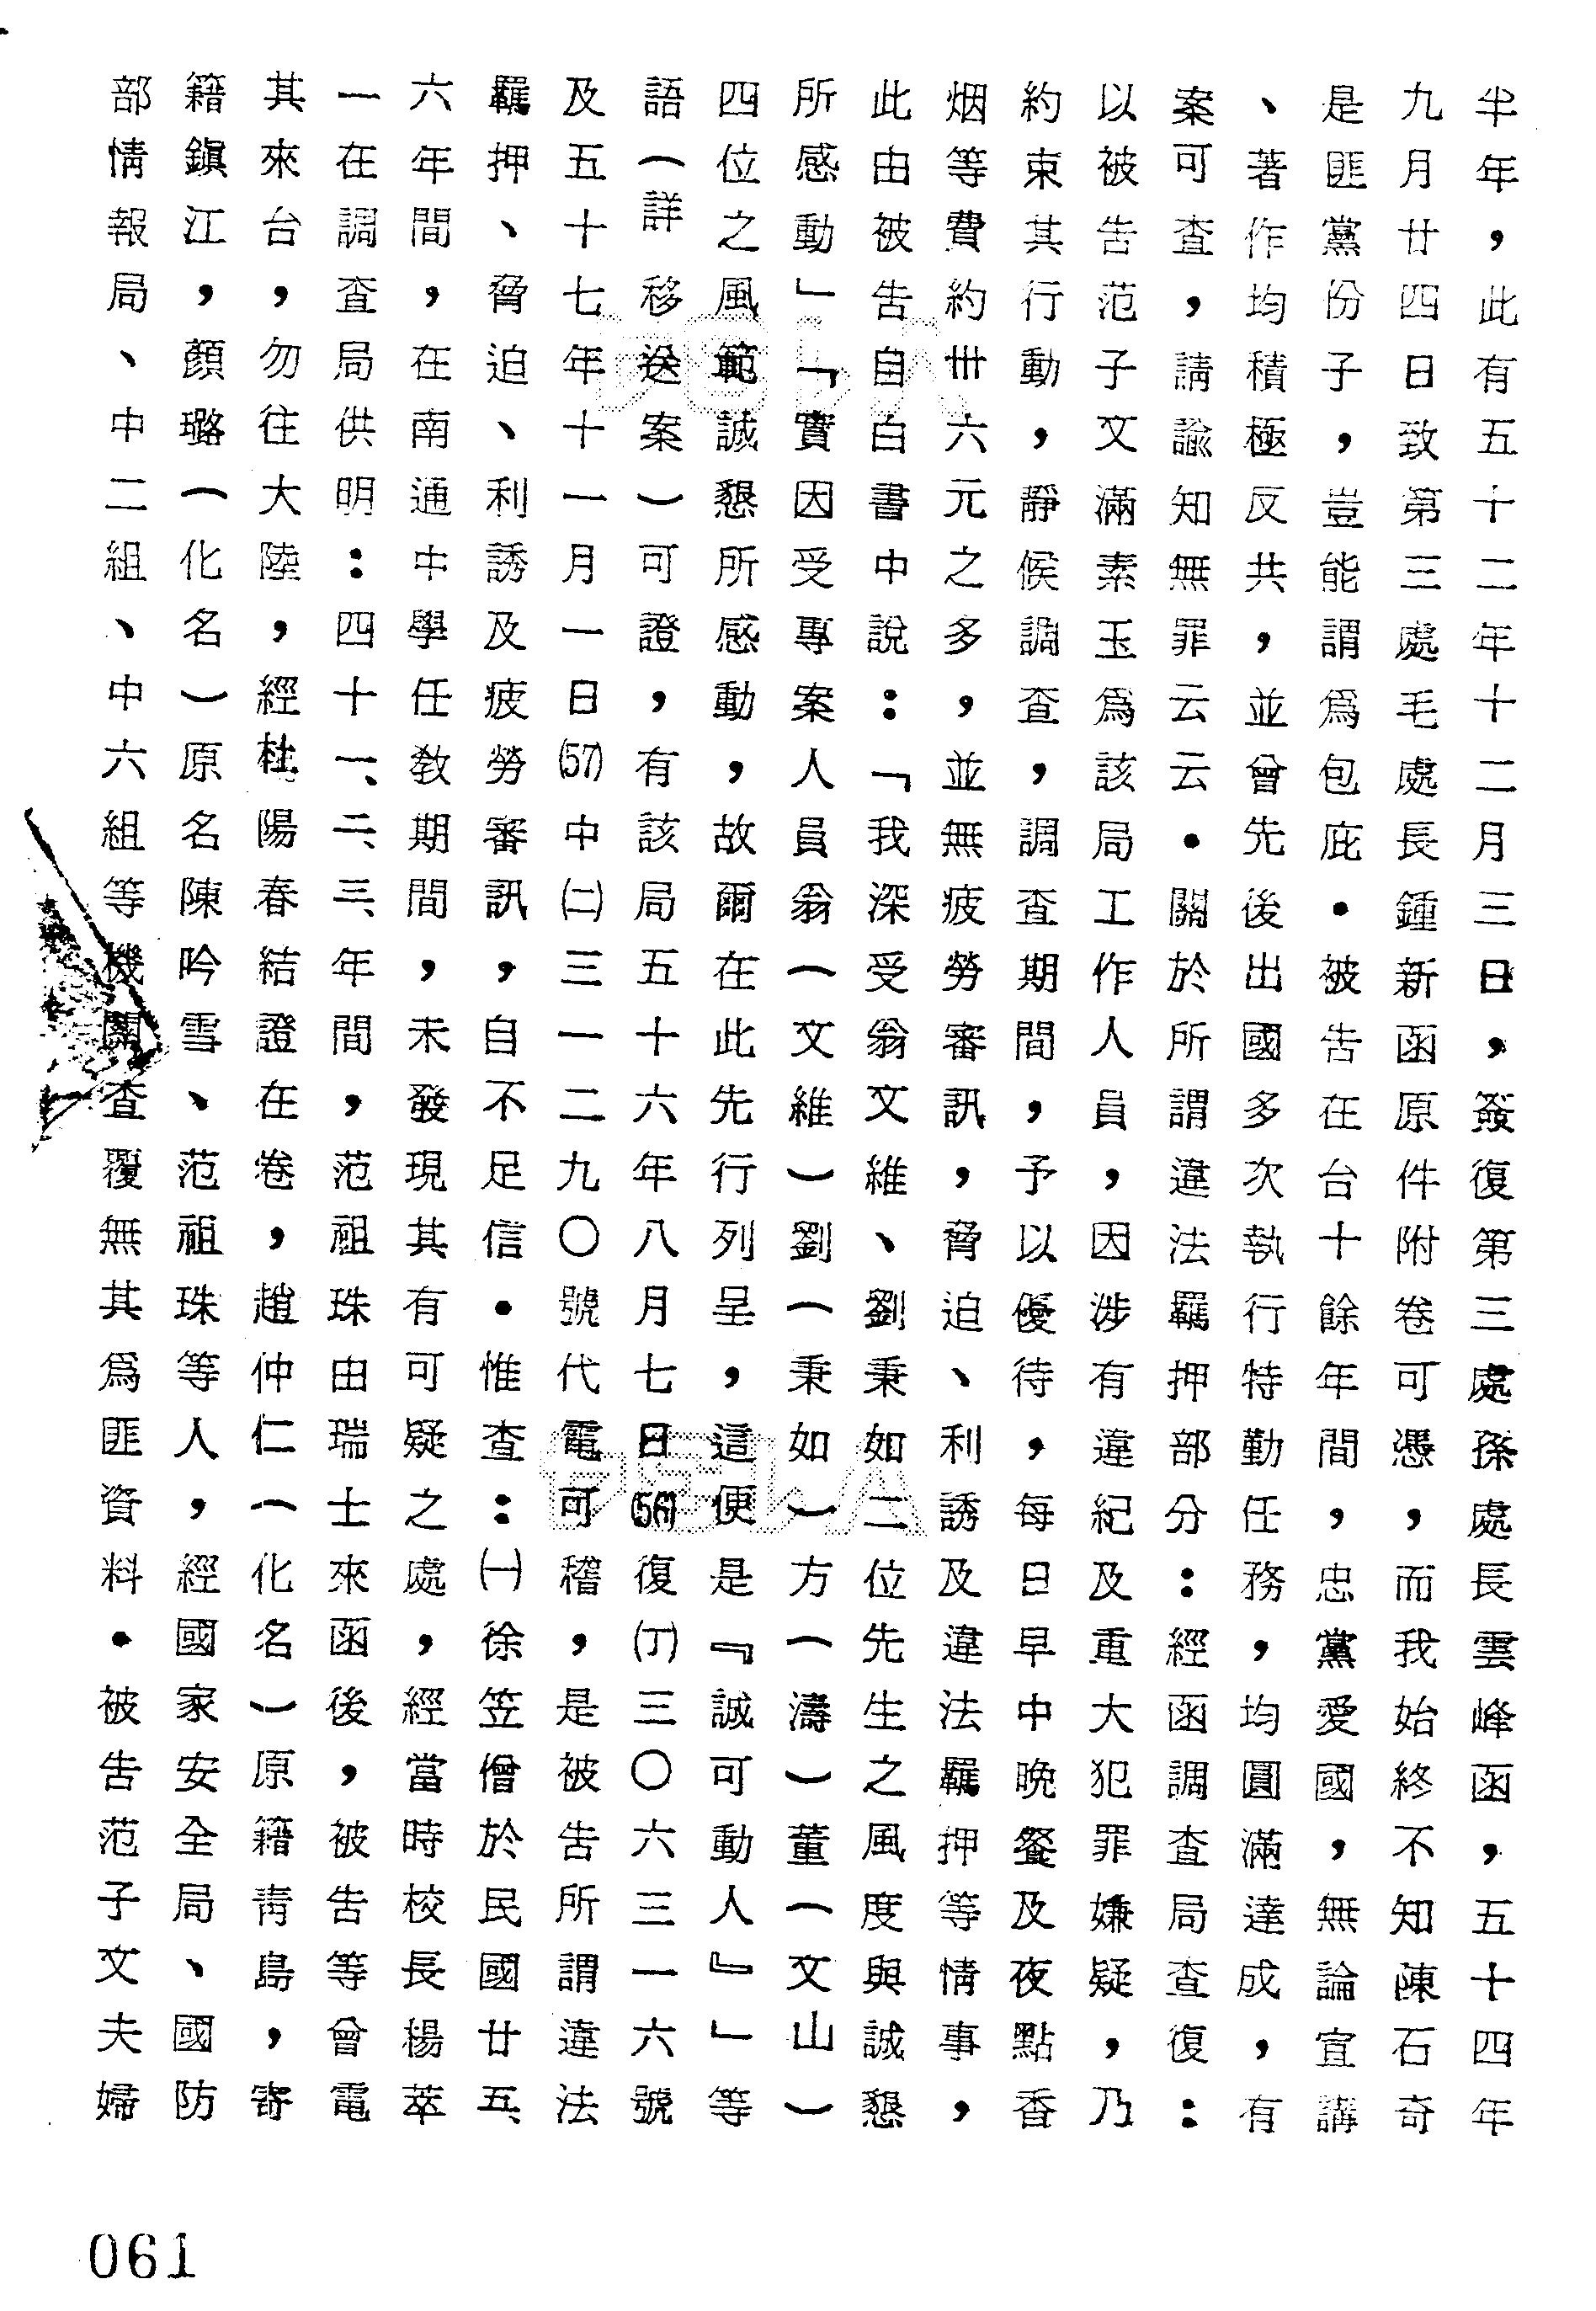 半年，此有五十二年十二月三日，簽復第三處孫處長雲峰函，五十四年
九月廿四日致第三處毛處長鍾新函原件附卷可憑，而我始終不知陳石奇
是匪黨份子，豈能謂為包庇．被告在台十餘年間，忠黨愛國，無論宣講
、著作均積極反共，並曾先後出國多次執行特勤任務，均圓滿達成，有
案可查，請諭知無罪云云．關於所謂違法羈押部分：經函調查局查復：
以被告范子文滿素玉為該局工作人員，因涉有違紀及重大犯罪嫌疑，乃
約束其行動，靜候調查，調查期間，予以優待，每日早中晚餐及夜點香
烟等費約卅六元之多，並無疲勞審訊，脅迫、利誘及違法羈押等情事，
此由被告自白書中說：「我深受翁文維、劉秉如二位先生之風度與誠懇
所感動」「實因受專案人員翁（文維）劉（秉如）方（濤）董（文山）
四位之風範誠懇所感動，故爾在此先行列呈，這便是『誠可動人』」等
語（詳移送案）可證，有該局五十六年八月七日(56)復(丁)三〇六三一六號
及五十七年十一月一日(57)中(二)三一二九〇號代電可稽，是被告所謂違法
羈押、脅迫、利誘及疲勞審訊，自不足信．惟查：(一)徐笠僧於民國廿五、
六年間，在南通中學任教期間，未發現其有可疑之處，經當時校長楊萃
一在調查局供明：四十一、二、三、年間，范祖珠由瑞士來函後，被告等曾電
其來台，勿往大陸，經杜陽春結證在卷，趙仲仁（化名）原籍青島，寄
籍鎮江，顏璐（化名）原名陳吟雪、范祖珠等人，經國家安全局、國防
部情報局、中二組、中六組等機關查覆無其為匪資料．被告范子文夫婦
061